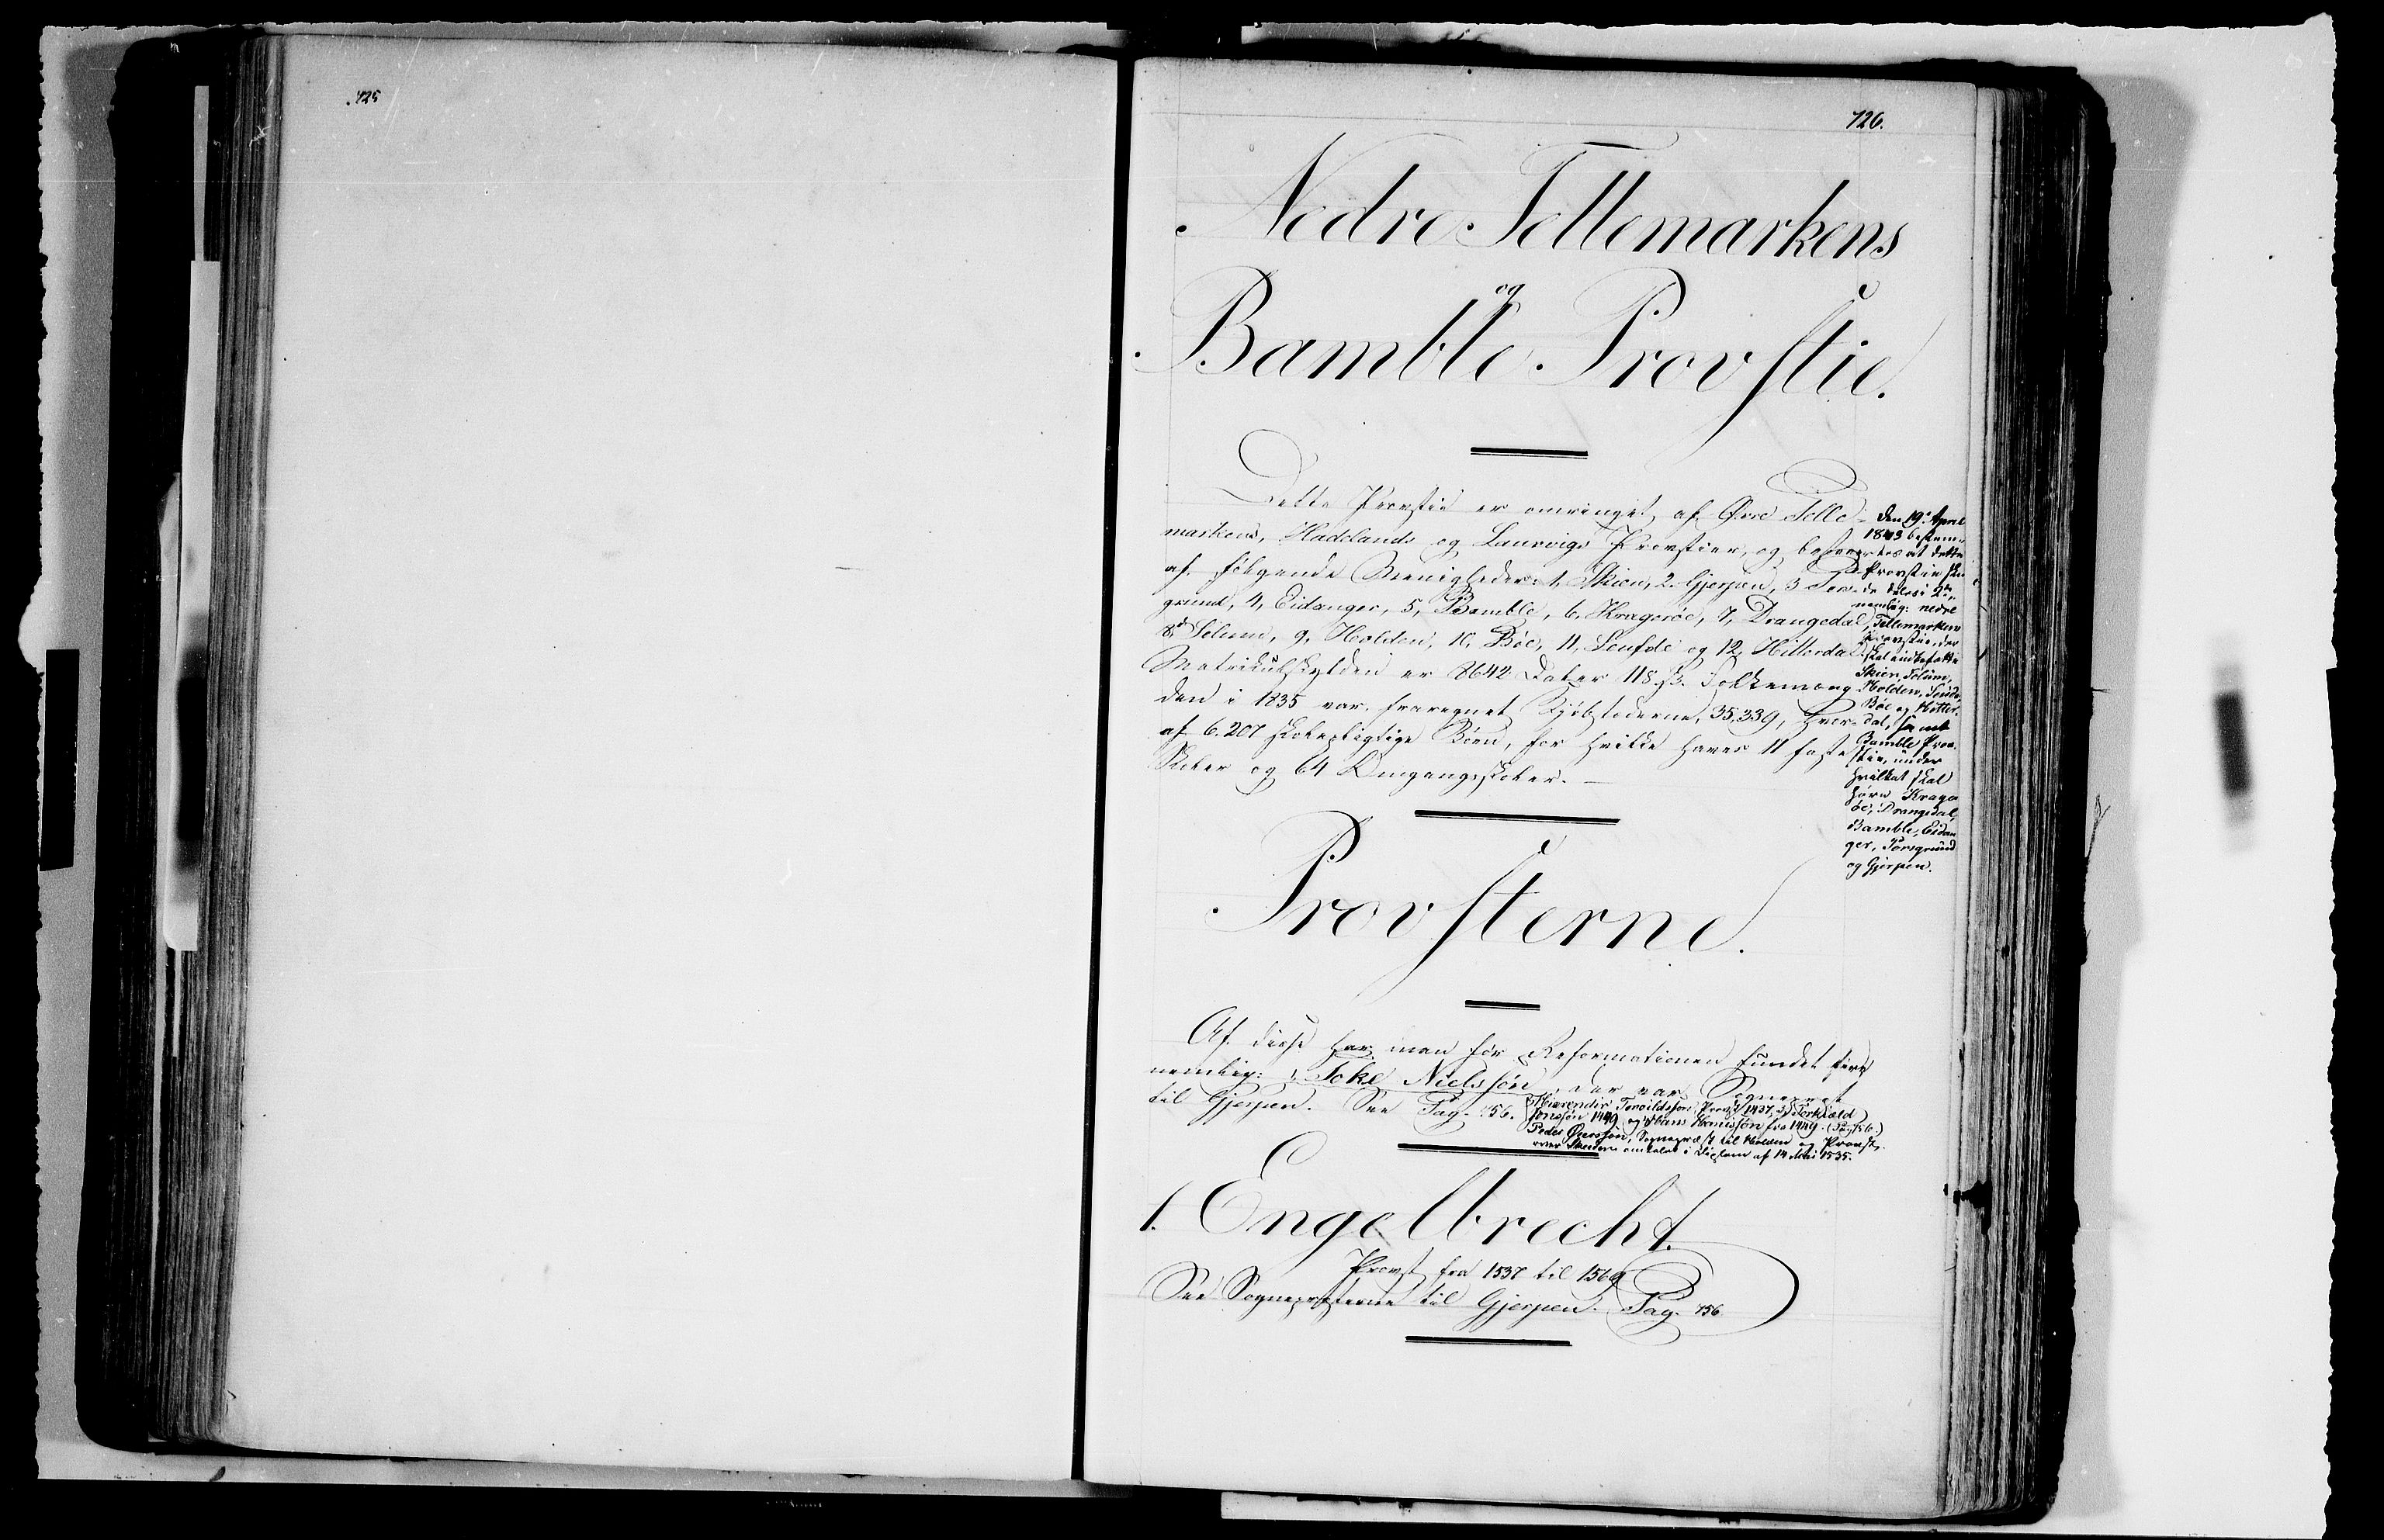 725
726.
Nedre Tellemarkens
og
Bamble Provstie.
Dette Provstie er omringet af Øvre Telle-
markens, Hadelands og Laurvigs Provstier, og bestaaer
af følgende Menigheder: 1, Skien, 2. Gjerpen, 3 Pors-
grund, 4, Eidanger, 5, Bamble, 6. Kragerøe, 7, Drangedal,
8, Solum, 9, Holden, 10, Bøe, 11, Seufde og 12, Hitterdal.
Matrikulskylden er 8642 Daler 118 ß. Folkemæng-
den i 1835 var, fraregnet Kjøbstæderne, 35,339, hver-
af 6.207 skolepligtige Børn, for hvilke haves 11 faste
Skoler og 64 Omgangsskoler.
Den 19. April
1843 bestem-
tes at dette
Provstie sku
de deles i 2de,
nemlig: nedre
Tellemarkens
Provstie, der
skal indbefatte
Skien, Solum,
Holden, Seude,
Bøe og Hitter-
dal, samt
Bamble Prov-
stie, under
hvilket skal
høre Krager
øe, Drangedal,
Bamble, Eidan
ger, Porsgrund
og Gjerpen.
Provsterne.
Af disse har man før Reformationen fundet fire
nemlig: 1, Toke Nielssøn, der var Sognepræst
til Gjerpen. See Pag. 756.
Torvildssøn, Provst 1437, 3, Torkiæld
Jonssøn 1449 og Hans fra 1449. (Pag 756.)
Peder Sognepræst til Holden og Provst
over Skeden omtalt i Diplom af 14 Mai 1535.
1. Engelbrecht.
Provst fra 1537 til 1569
See Sognepræsterne til Gjerpen. Pag. 756